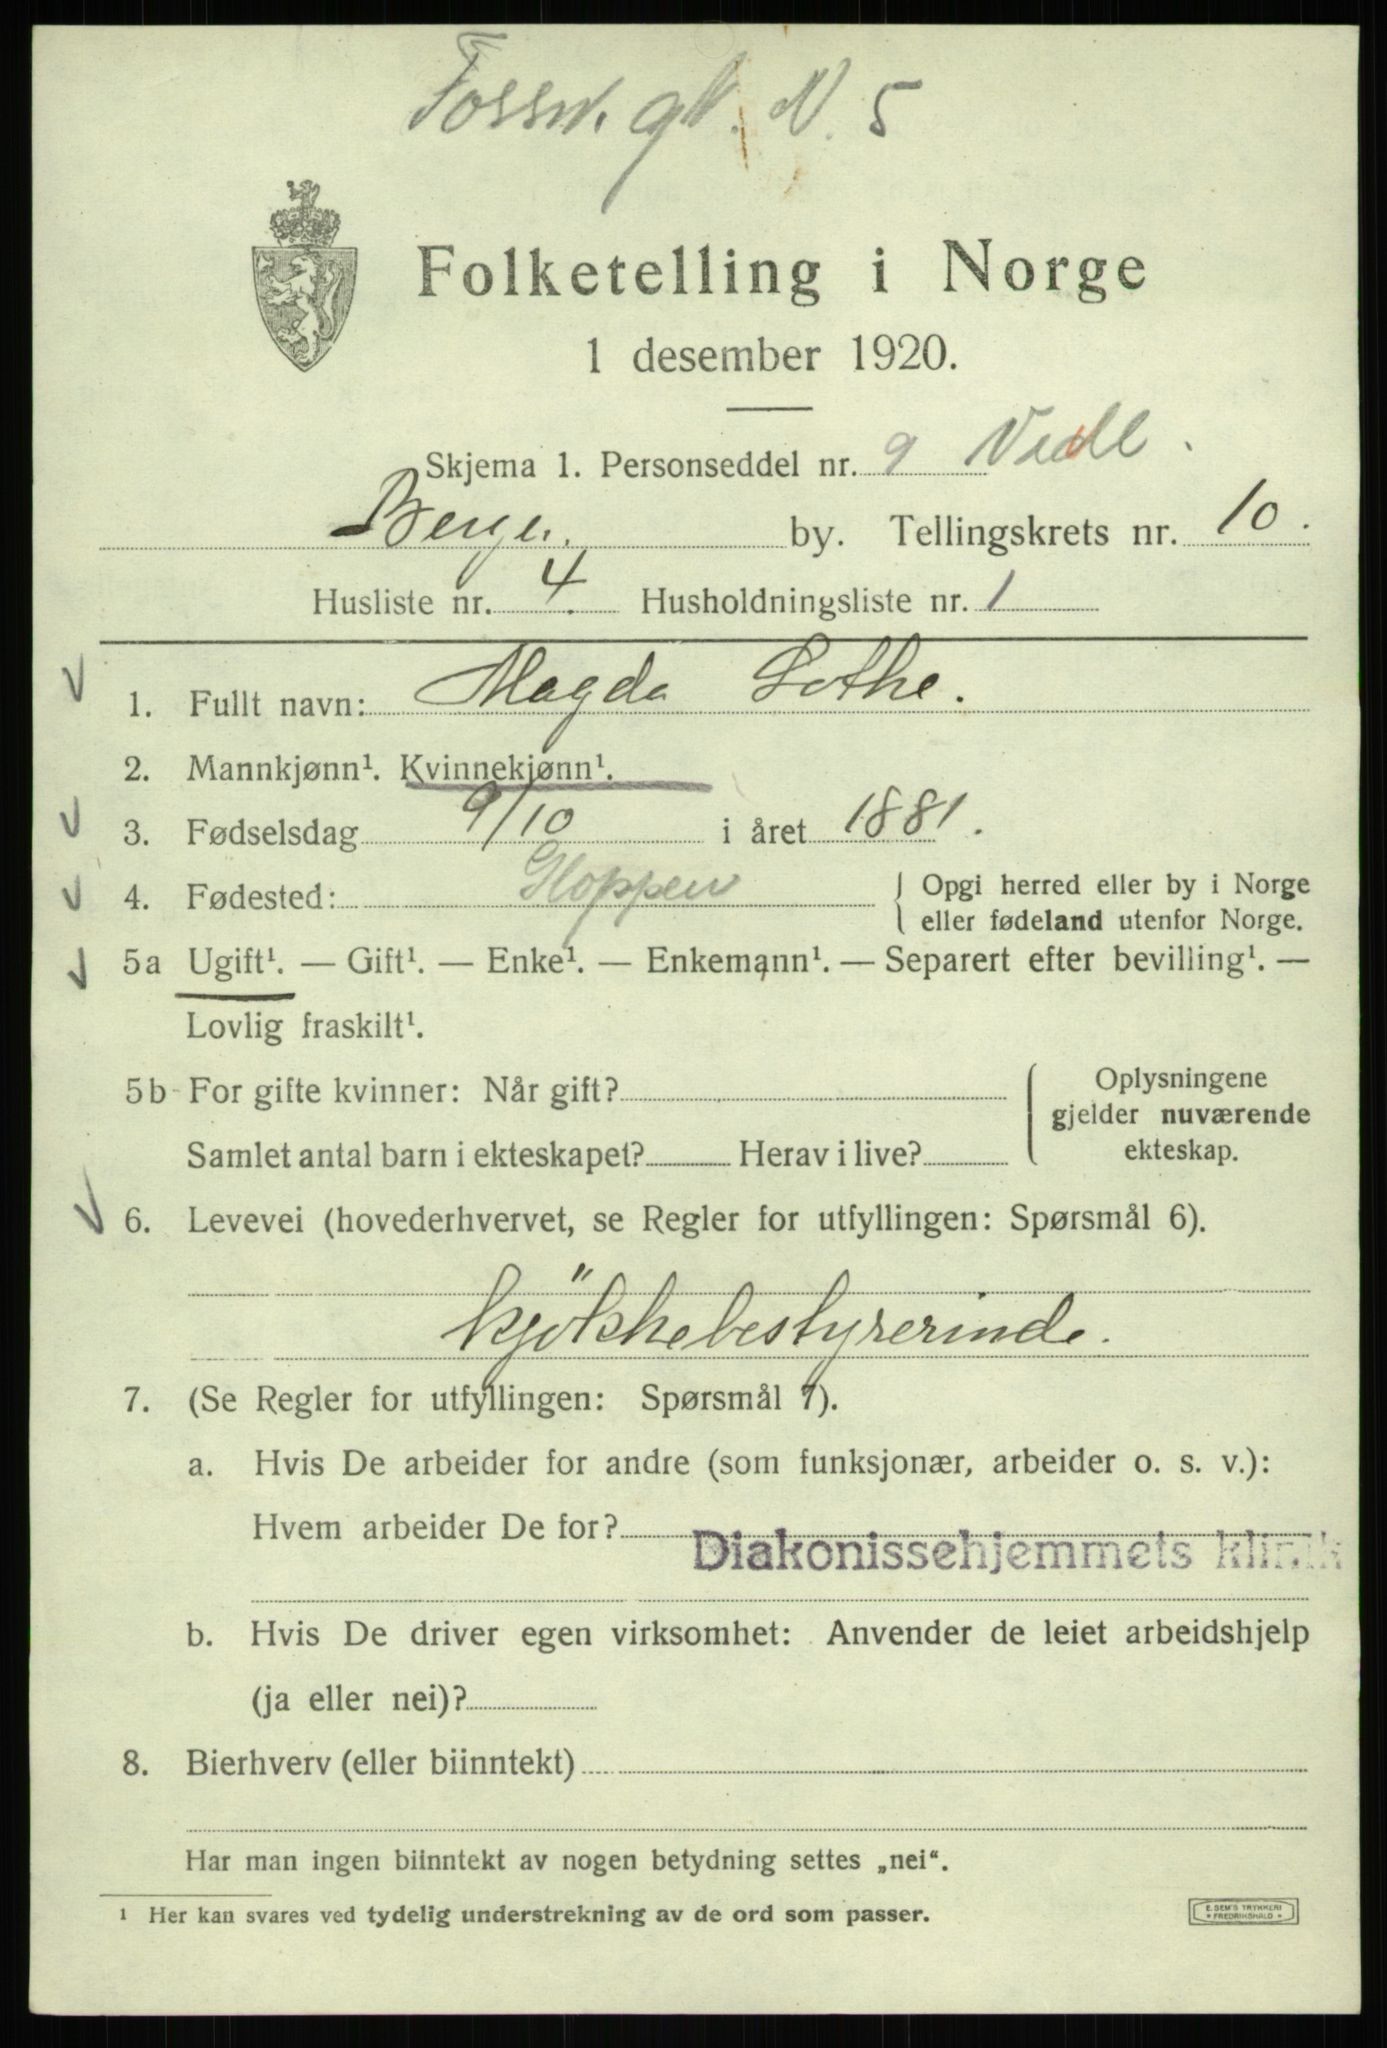 Fossw. gt. N. 5
Folketelling i Norge
1 desember 1920.
Skjema 1. Personseddel nr. 9
Bergen. by. Tellingskrets nr. 10.
Husliste nr. 4. Husholdningsliste nr. 1
1. Fullt navn: Magda Lothe.
2. Mannkjønn¹. Kvinnekjønn¹.
3. Fødselsdag 9/10 i året 1881.
4. Fødested: Gloppen { Opgi herred eller by i Norge
eller fødeland utenfor Norge.
5a Ugift¹. — Gift¹. — Enke¹. — Enkemann¹. — Separert efter bevilling¹. —
Lovlig fraskilt¹.
5b For gifte kvinner: Når gift? { Oplysningene
gjelder nuværende
Samlet antal barn i ekteskapet? Herav i live? ekteskap.
6. Levevei (hovederhvervet, se Regler for utfyllingen: Spørsmål 6).
kjökkebestyrerinde.
7. (Se Regler for utfyllingen: Spørsmål 7).
a. Hvis De arbeider for andre (som funksjonær, arbeider o. s. v.):
Hvem arbeider De for?
Diakonissehjemmets klinik
b. Hvis De driver egen virksomhet: Anvender de leiet arbeidshjelp
(ja eller nei)?
8. Bierhverv (eller biinntekt)
Har man ingen biinntekt av nogen betydning settes „nei“.
¹ Her kan svares ved tydelig understrekning av de ord som passer.
E. SEM'S TRYKKERI
FREDRIKSHALD